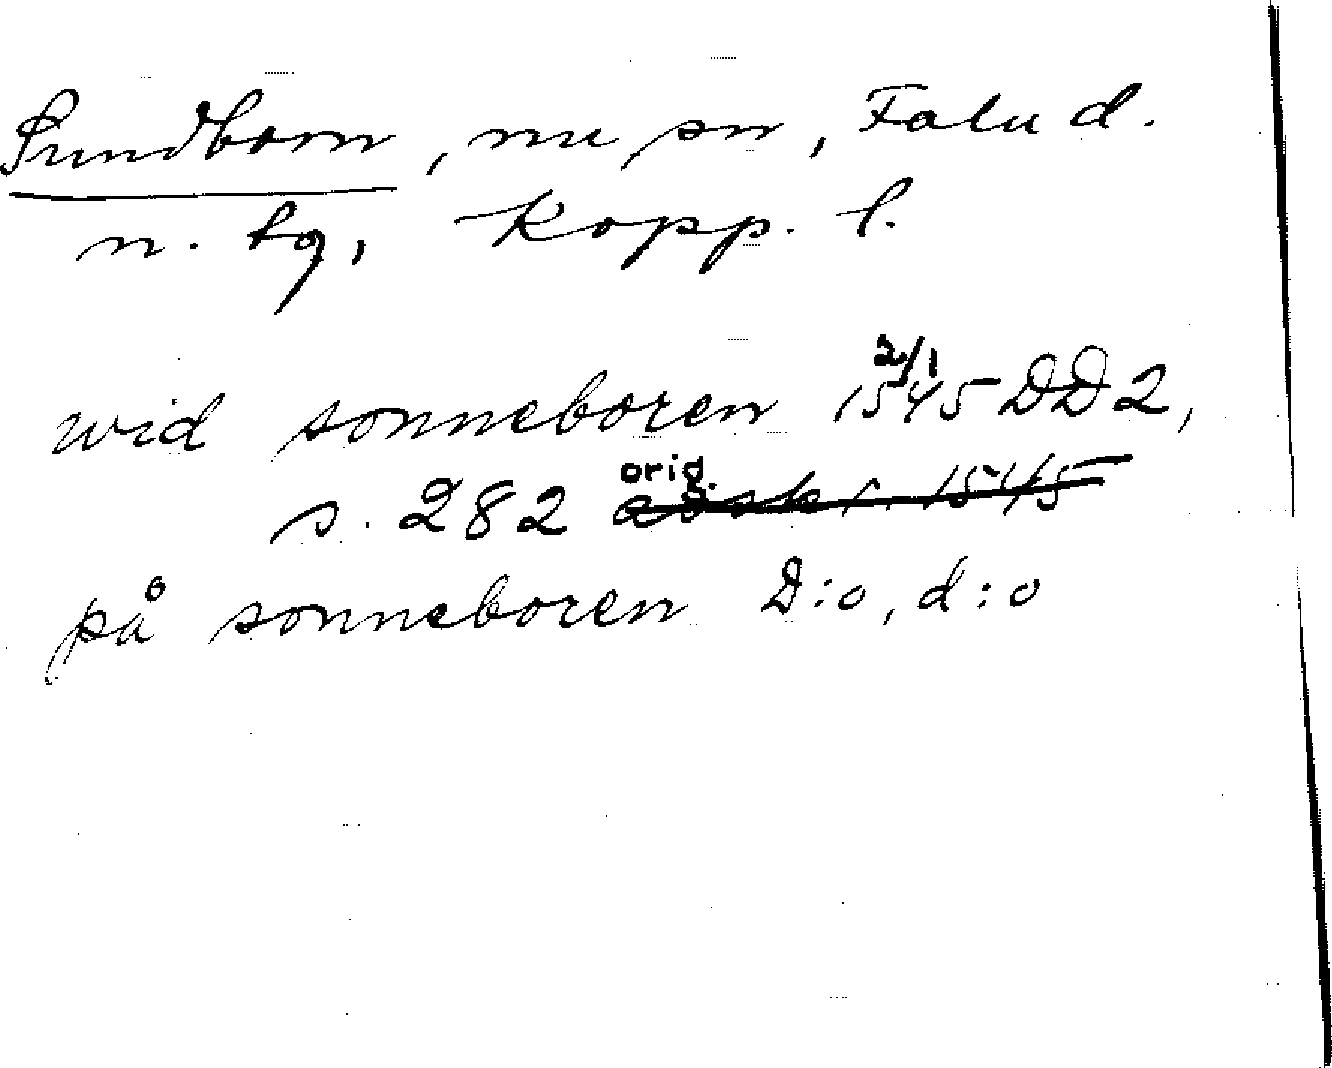 Sundborn, nu sn, Falu d.
n. tg, Kopp. l.
wid sonneboren 2/1 1545 DD2,
s. 282 orig. avskr. 1545
på sonneboren D:o, d:o